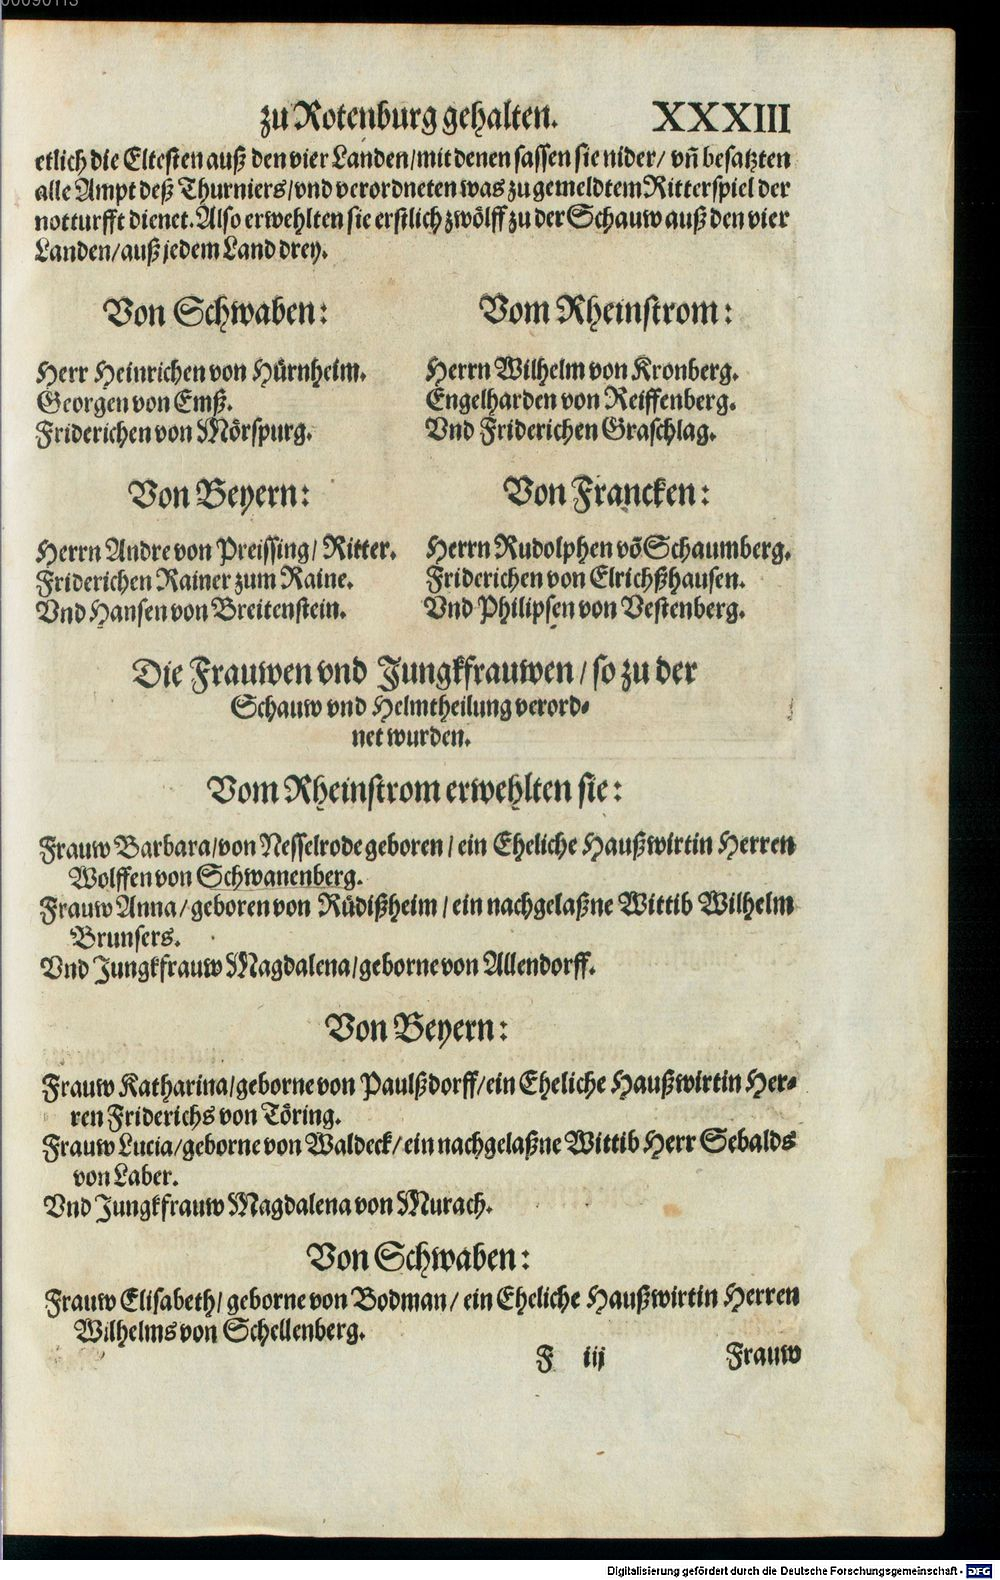 zu Rotenburg gehalten. XXXIII
etlich die Eltesten auß den vier Landen/mit denen sassen sie nider/ vñ besatzten
alle Ampt deß Thurniers/vnd verordneten was zu gemeldtem Ritterspiel der
notturfft dienet. Also erwehlten sie erstlich zwölff zu der Schauw auß den vier
Landen/auß jedem Land drey.
Von Schwaben:
Herr Heinrichen von Hürnheim.
Georgen von Emß.
Friderichen von Mörspurg.
Vom Rheinstrom:
Herrn Wilhelm von Kronberg.
Engelharden von Reiffenberg.
Vnd Friderichen Graschlag.
Von Beyern:
Herrn Andre von Preissing/ Ritter.
Friderichen Rainer zum Raine.
Vnd Hansen von Breitenstein.
Von Francken:
Herrn Rudolphen võ Schaumberg.
Friderichen von Elrichßhausen.
Vnd Philipsen von Vestenberg.
Die Frauwen vnd Jungkfrauwen/ so zu der
Schauw vnd Helmtheilung verord-
net wurden.
Vom Rheinstrom erwehlten sie:
Frauw Barbara/von Nesselrode geboren/ ein Eheliche Haußwirtin Herren
Wolffen von Schwanenberg.
Frauw Anna/ geboren von Rüdißheim/ ein nachgelaßne Wittib Wilhelm
Brunsers.
Vnd Jungkfrauw Magdalena/geborne von Allendorff.
Von Beyern:
Frauw Katharina/geborne von Paulßdorff/ein Eheliche Haußwirtin Her-
ren Friderichs von Töring.
Frauw Lucia/geborne von Waldeck/ ein nachgelaßne Wittib Herr Sebalds
von Laber.
Vnd Jungkfrauw Magdalena von Murach.
Von Schwaben:
Frauw Elisabeth/ geborne von Bodman/ ein Eheliche Haußwirtin Herren
Wilhelms von Schellenberg.
F iij Frauw
Digitalisierung gefördert durch die Deutsche Forschungsgemeinschaft - DFG